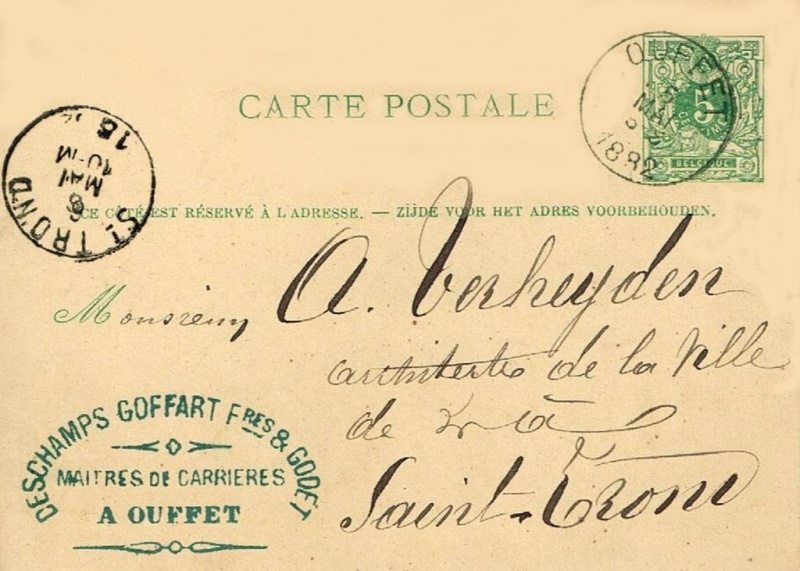 CARTE POSTALE
OUFFET
5
MAI
1882
5
BELGIQUE
ST. TROND
6
MAI
10-M
15
CE CÔTÉ EST RÉSERVÉ À L'ADRESSE. — ZIJDE VOOR HET ADRES VOORBEHOUDEN.
Monsieur
A. Verheyden
architecte de la Ville
de à
Saint-Trond
DESCHAMPS GOFFART FRES & GODET
MAITRES DE CARRIERES
A OUFFET